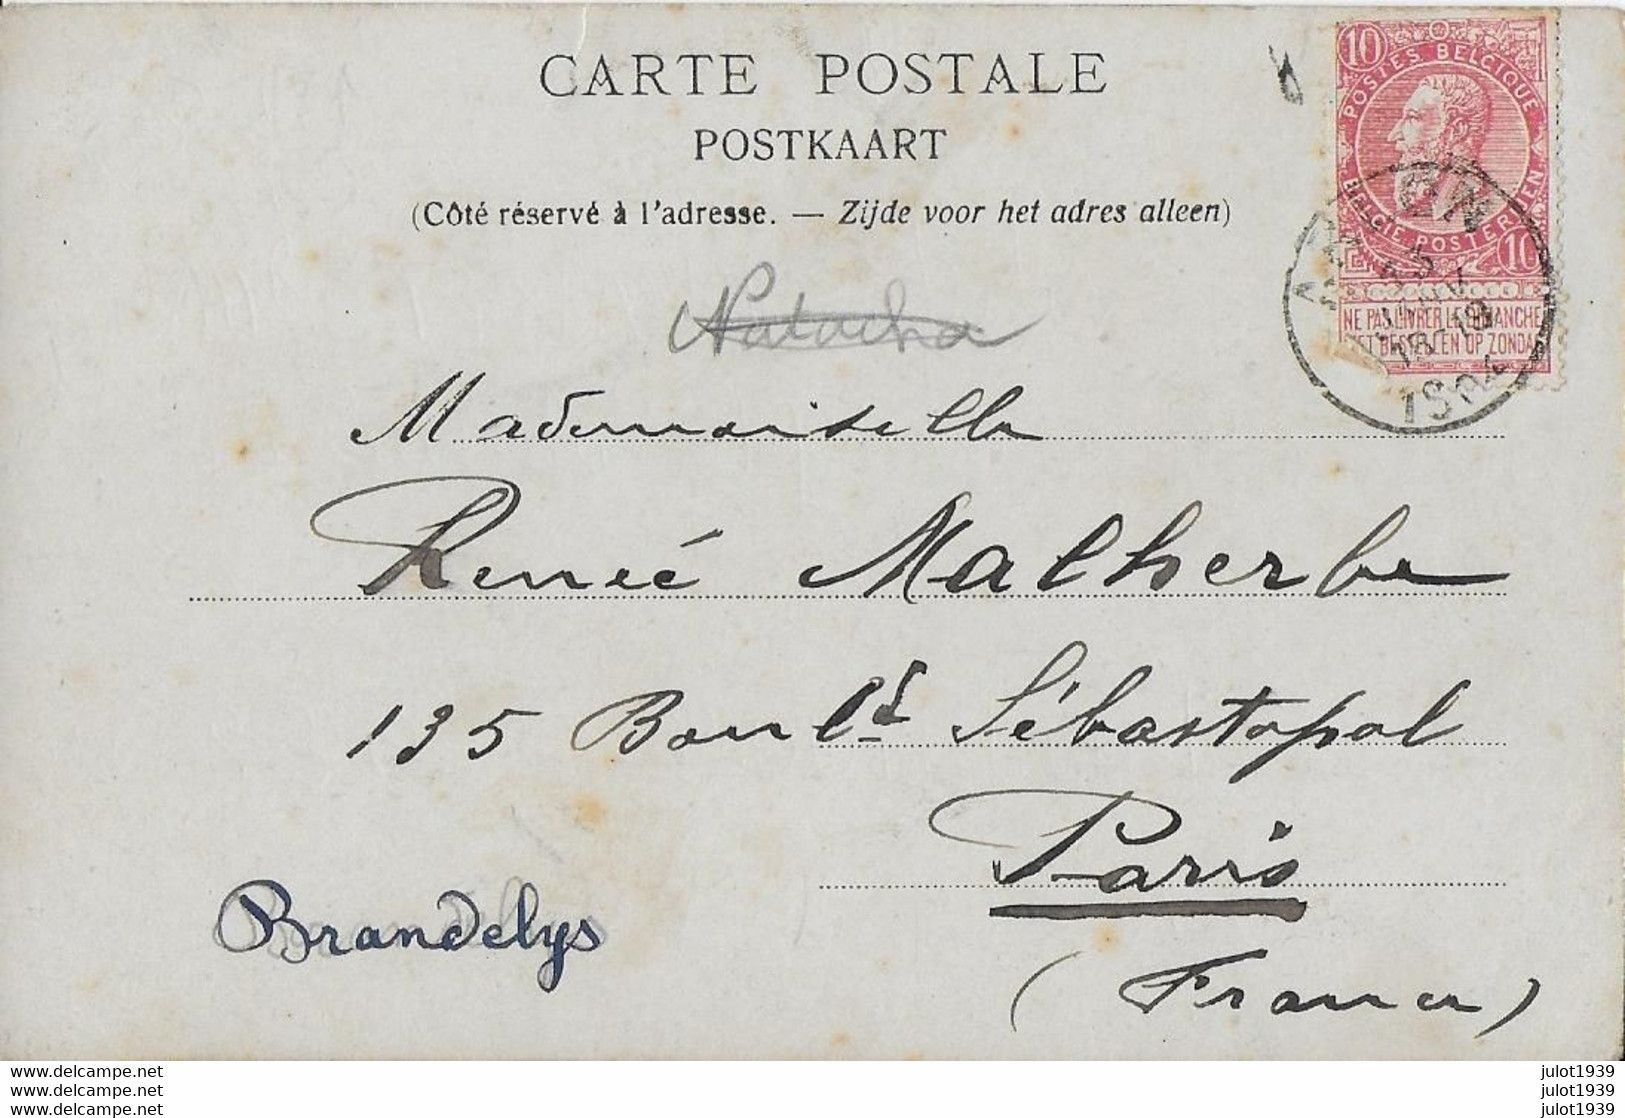 CARTE POSTALE
POSTKAART
(Côté réservé à l'adresse. — Zijde voor het adres alleen)
10
POSTES BELGIQUE
BELGIE POSTERIJEN 10
NE PAS LIVRER LE DIMANCHE
NIET BESTELLEN OP ZONDAG
Natacha
Mademoiselle
Renée Malherbe
135 Boulᵈ Sébastopol
Paris
(France)
Brandelys
www.delcampe.net
www.delcampe.net
www.delcampe.net
julot1939
julot1939
julot1939